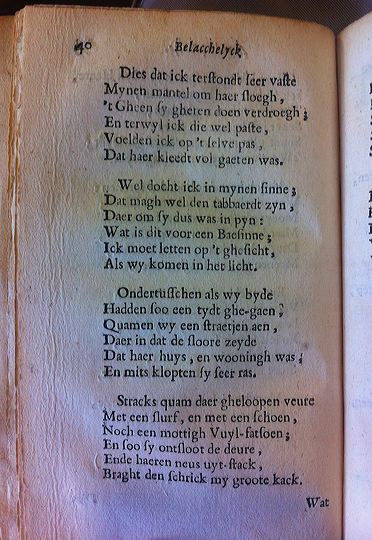 40 Belacchelyck
Dies dat ick terstondt seer vaste
Mynen mantel om haer sloegh,
't Gheen sy gheren doen verdroegh;
En terwyl ick die wel paste,
Voelden ick op 't selve pas,
Dat haer kleedt vol gaeten was.
Wel docht ick in mynen sinne;
Dat magh wel den tabbaerdt zyn,
Daer om sy dus was in pyn:
Wat is dit voor een Baesinne;
Ick moet letten op 't ghesicht,
Als wy komen in het licht.
Ondertusschen als wy byde
Hadden soo een tydt ghe-gaen,
Quamen wy een straetjen aen,
Daer in dat de sloore zeyde
Dat haer huys, en wooningh was;
En mits klopten sy seer ras.
Stracks quam daer gheloopen veure
Met een slurf, en met een schoen,
Noch een mottigh Vuyl-fatsoen;
En soo sy ontsloot de deure,
Ende haeren neus uyt-stack,
Braght den schrick my groote kack.
Wat